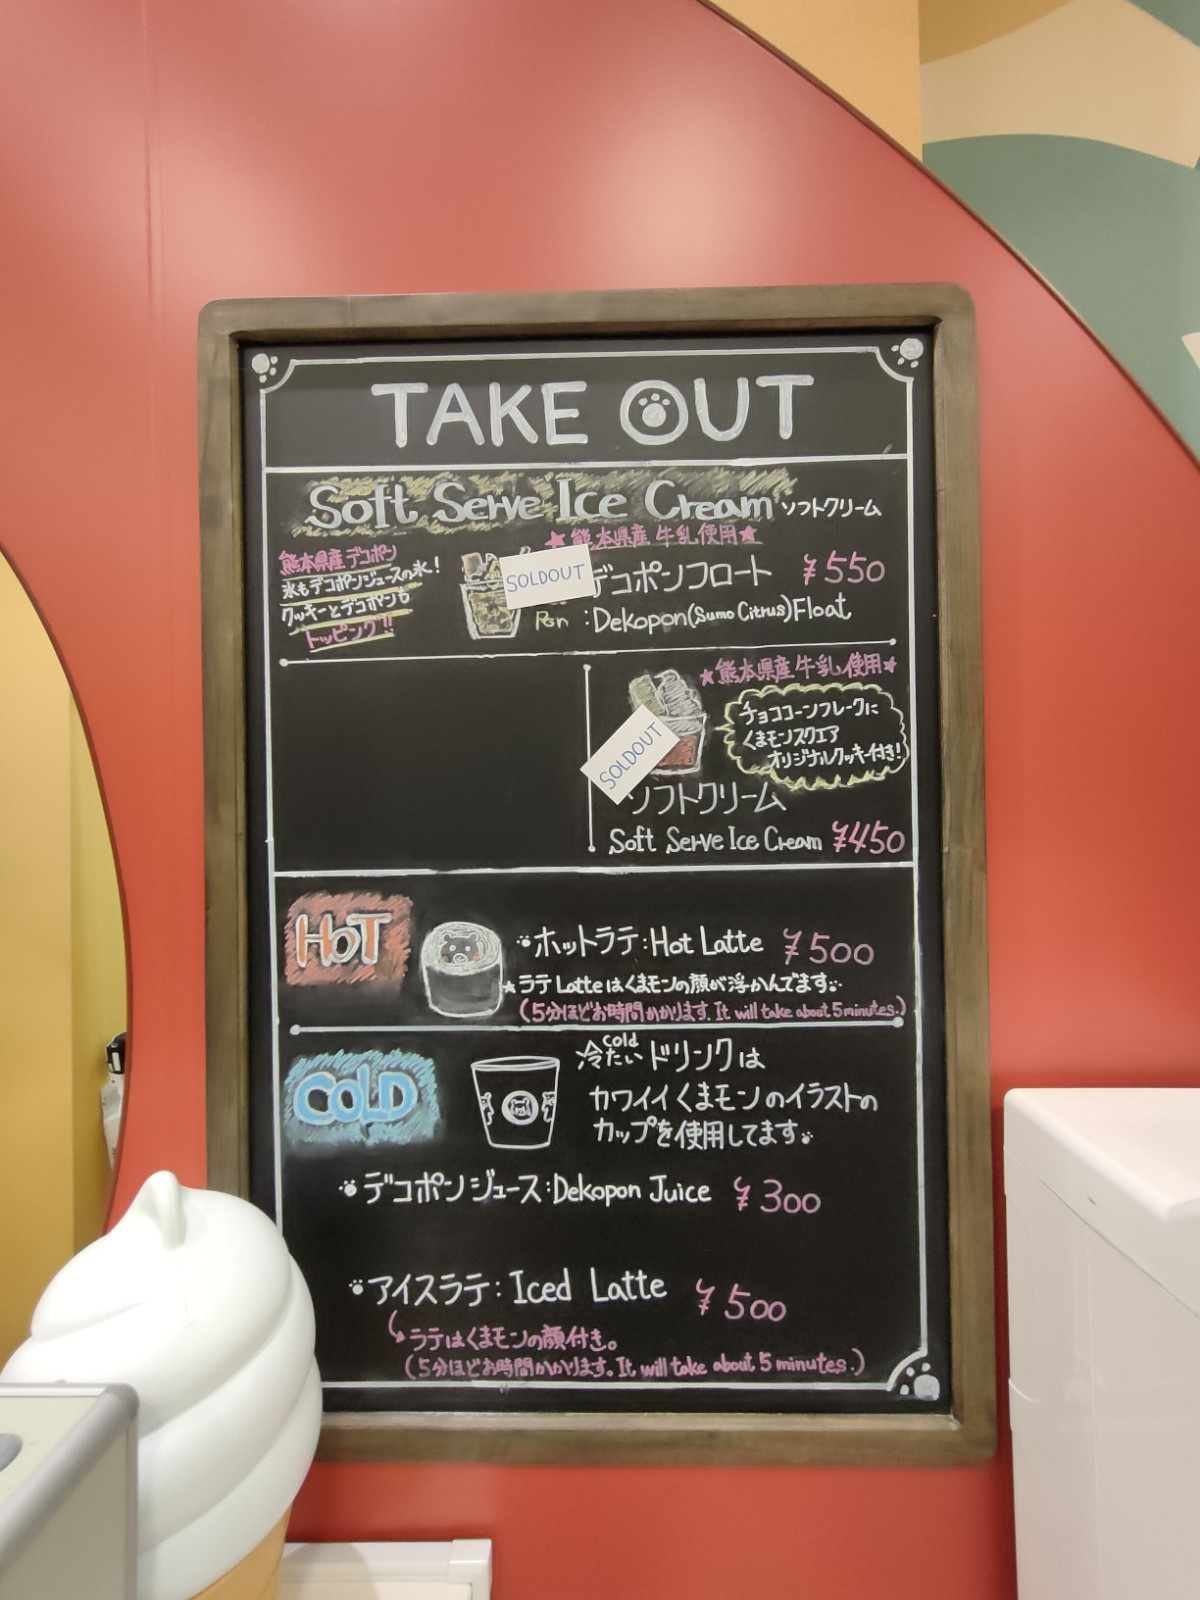 TAKE OUT
Soft Serve Ice Cream ソフトクリーム
★熊本県産 牛乳使用★
熊本県産デコポン
氷もデコポンジュースの氷!
クッキーとデコポンも
トッピング!!
SOLDOUT
デコポンフロート ¥550
Pon :Dekopon(Sumo Citrus)Float
★熊本県産牛乳使用★
チョココーンフレークに
くまモンスクエア
オリジナルクッキー付き!
SOLDOUT
ソフトクリーム
Soft Serve Ice Cream ¥450
HOT
ホットラテ:Hot Latte ¥500
★ラテ Latteはくまモンの顔が浮かんでます。
(5分ほどお時間かかります. It will take about 5 minutes.)
COLD
cold
冷たいドリンクは
カワイイくまモンのイラストの
カップを使用してます。
デコポンジュース:Dekopon Juice ¥300
アイスラテ:Iced Latte ¥500
ラテはくまモンの顔付き。
(5分ほどお時間かかります。It will take about 5 minutes.)